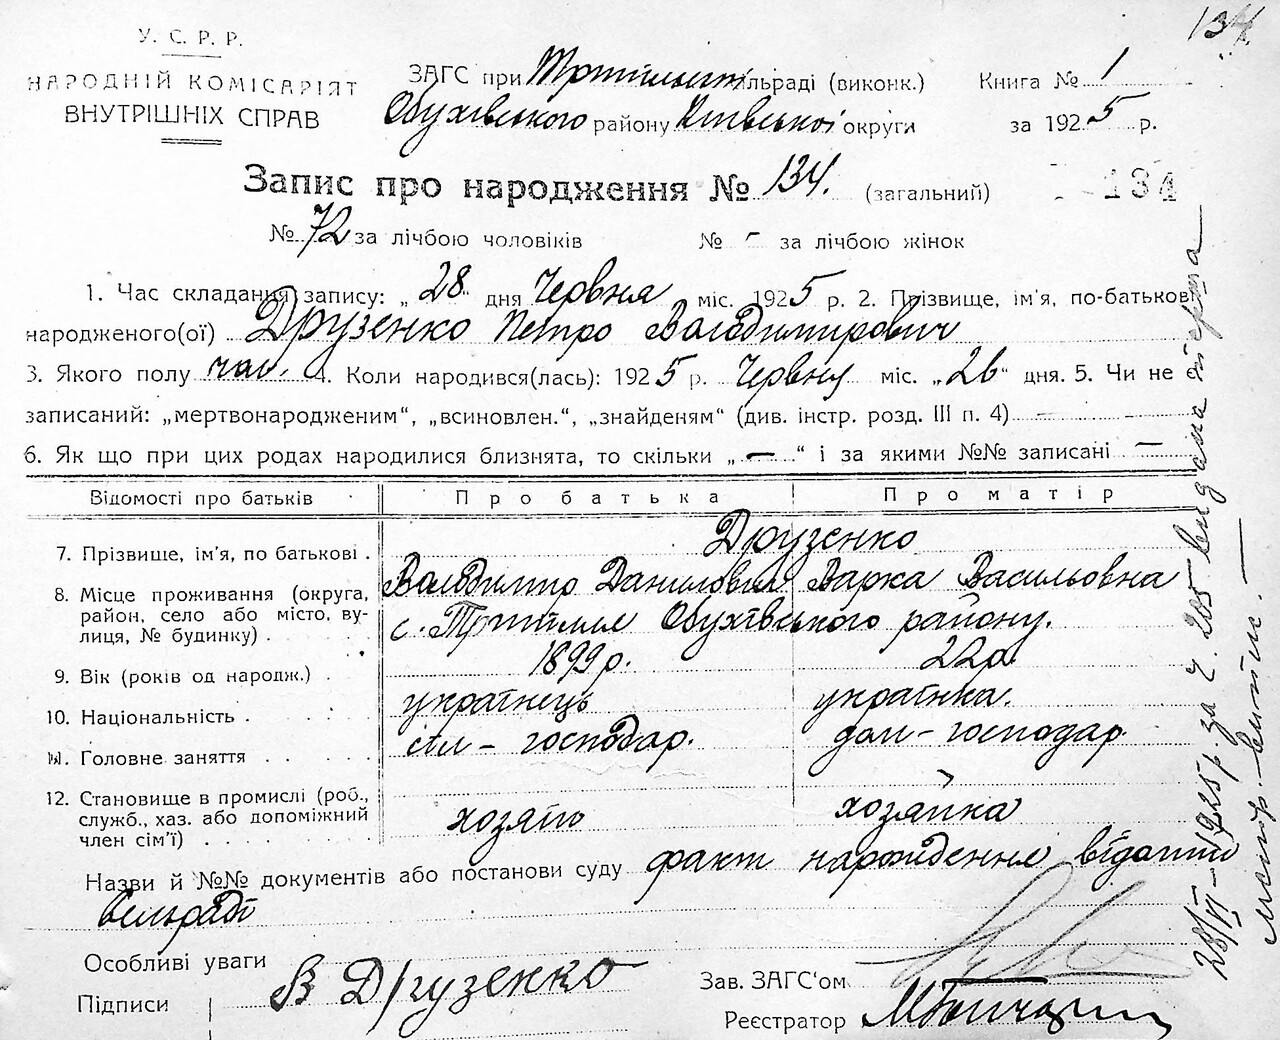 134
У. С. Р. Р.
НАРОДНІЙ КОМІСАРІЯТ
ВНУТРІШНІХ СПРАВ
ЗАГС при ільраді (виконк.)
Обухівського району Київської округи
Книга № 1
за 1925 р.
Запис про народження № 134. (загальний)
134
№ 72 за лічбою чоловіків № - за лічбою жінок
1. Час складання запису: „28“ дня Червня міс. 1925 р. 2. Прізвище, ім'я, по-батькові
народженого(ої) Друзенко Петро Володимирович
3. Якого полу чол. 4. Коли народився(лась): 1925 р. Червня міс. „26“ дня. 5. Чи не
записаний: „мертвонародженим“, „всиновлен.“, „знайденям“ (див. інстр. розд. III п. 4) —
6. Як що при цих родах народилися близнята, то скільки „—“ і за якими №№ записані —
Відомості про батьків Про батька Про матір
7. Прізвище, ім'я, по батькові .
Друзенко
Володимир Данилович Варка Васильовна
8. Місце проживання (округа,
район, село або місто, ву-
лиця, № будинку) .
с. Трипілля Обухівського району.
9. Вік (років од народж.) .
1899 р. 22 р.
10. Національність .
українець українка.
11. Головне заняття
сіл - господар. дом - господар
12. Становище в промислі (роб.,
служб., хаз. або допоміжний
член сім'ї)
хозяїн хозяйка
Назви й №№ документів або постанови суду факт народження відомий
сільраді
Особливі уваги
Підписи В Друзенко
Зав. ЗАГС'ом
Реєстратор
28/VI-1925р. за ч. 205 видана